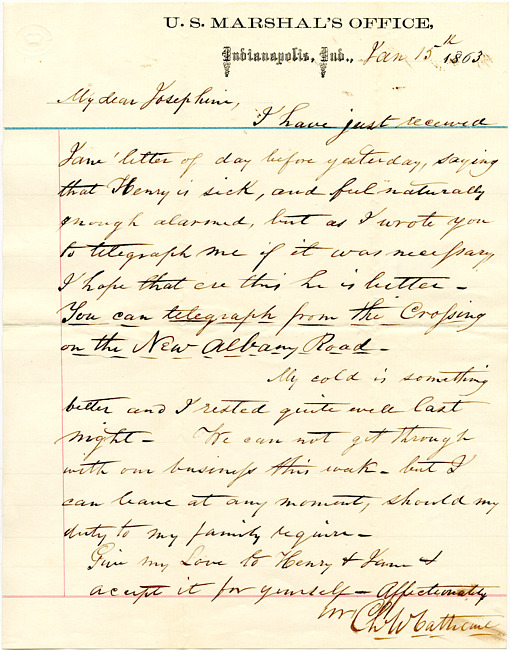 U. S. MARSHAL'S OFFICE,
Indianapolis, Ind., Jan 15th 1863
My dear Josephine,
I have just received
Jane' letter of day before yesterday, saying
that Henry is sick, and feel naturally
enough alarmed, but as I wrote you
to telegraph me if it was necessary
I hope that ere this he is better -
You can telegraph from the Crossing
on the New Albany Road -
My cold is something
better and I rested quite well last
night - We can not get through
with our business this week - but I
can leave at any moment, should my
duty to my family require -
Give my Love to Henry & Jane &
accept it for yourself - Affectionately
Chs W Cathcart